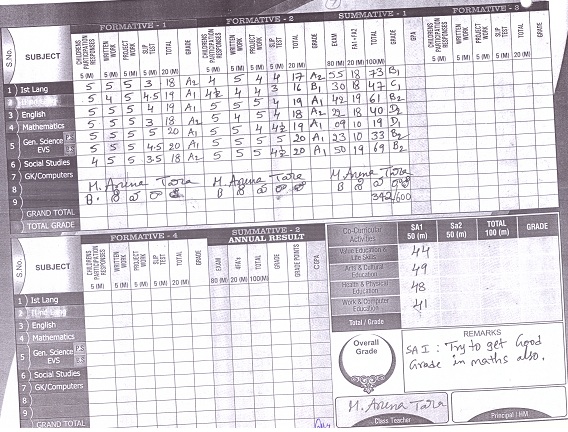 FORMATIVE - 1 FORMATIVE - 2 SUMMATIVE - 1 FORMATIVE - 3
S.No. SUBJECT CHILDRENS PARTICIPATION RESPONSES WRITTEN WORK PROJECT WORK SLIP TEST TOTAL GRADE CHILDRENS PARTICIPATION RESPONSES WRITTEN WORK PROJECT WORK SLIP TEST TOTAL GRADE EXAM FA1+FA2 TOTAL GRADE GPA CHILDRENS PARTICIPATION RESPONSES WRITTEN WORK PROJECT WORK SLIP TEST TOTAL GRADE
5 (M) 5 (M) 5 (M) 5 (M) 20 (M) 5 (M) 5 (M) 5 (M) 5 (M) 20 (M) 80 (M) 20 (M) 100(M) 5 (M) 5 (M) 5 (M) 5 (M) 20 (M)
1 1st Lang 5 5 5 3 18 A2 4 5 4 4 17 A2 55 18 73 B1
2 5 4 5 4.5 19 A1 4½ 4 4 3 16 B1 30 18 47 C1
3 English 5 5 5 4 19 A1 5 5 5 4 19 A1 42 19 61 B2
4 Mathematics 5 5 5 3 18 A2 5 4 5 4 18 A2 22 18 40 D2
5 Gen. Science EVS 5 5 5 5 20 A1 5 5 4 4½ 19 A1 09 10 19 D1
5 5 5 4.5 20 A1 5 5 5 5 20 A1 23 10 33 B2
6 Social Studies 4 5 5 3.5 18 A2 5 5 5 4½ 20 A1 50 19 69 B2
7 GK/Computers
8 M. Aruna Tara M. Aruna Tara M. Aruna Tara
9 342/600
GRAND TOTAL
TOTAL GRADE
FORMATIVE - 4 SUMMATIVE - 2 ANNUAL RESULT
S.No. SUBJECT CHILDRENS PARTICIPATION RESPONSES WRITTEN WORK PROJECT WORK SLIP TEST TOTAL GRADE EXAM 4FA's TOTAL GRADE GRADE POINTS CGPA
5 (M) 5 (M) 5 (M) 5 (M) 20 (M) 80 (M) 20 (M) 100(M)
1 1st Lang
2
3 English
4 Mathematics
5 Gen. Science EVS
6 Social Studies
7 GK/Computers
8
9
GRAND TOTAL
Co-Curricular Activities SA1 50 (m) Sa2 50 (m) TOTAL 100 (m) GRADE
Value Education & Life Skills 44
Arts & Cultural Education 49
Health & Physical Education 48
Work & Computer Education 41
Total / Grade
Overall Grade
REMARKS
SA I : Try to get Good
Grade in maths also.
M. Aruna Tara
Class Teacher
Principal / HM